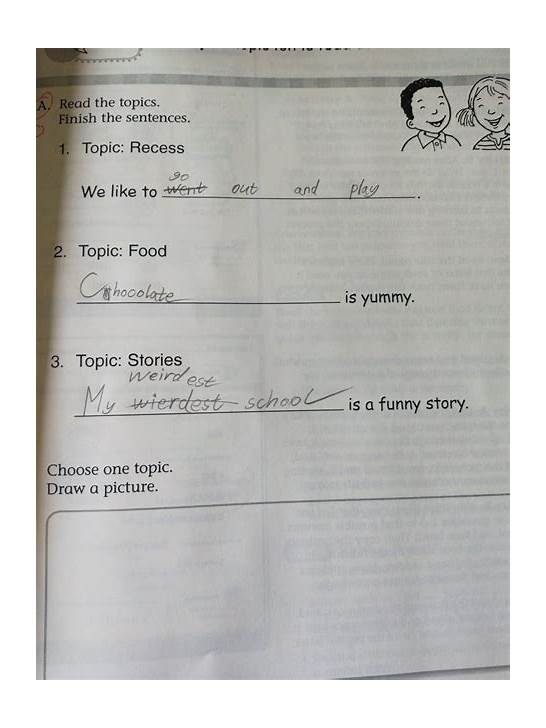 A. Read the topics.
Finish the sentences.
1. Topic: Recess
go
We like to went out and play .
2. Topic: Food
Chocolate is yummy.
3. Topic: Stories
weirdest
My wierdest school is a funny story.
Choose one topic.
Draw a picture.